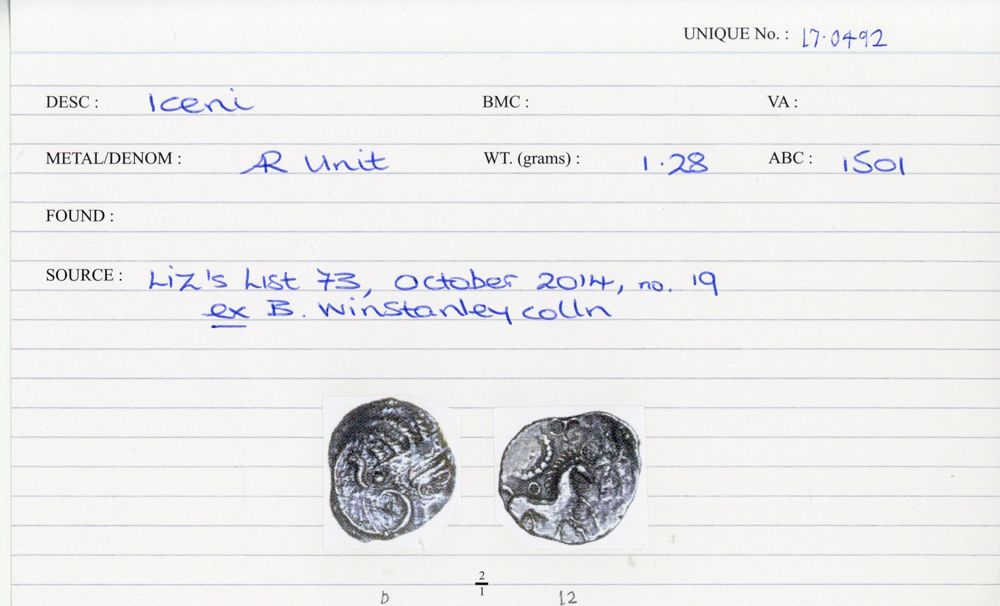 UNIQUE No. : 17.0492
DESC : Iceni BMC : VA :
METAL/DENOM : AR Unit WT. (grams) : 1.28 ABC : 1501
FOUND :
SOURCE : Liz's List 73, October 2014, no. 19
ex B. Winstanley colln
2
1
b 12